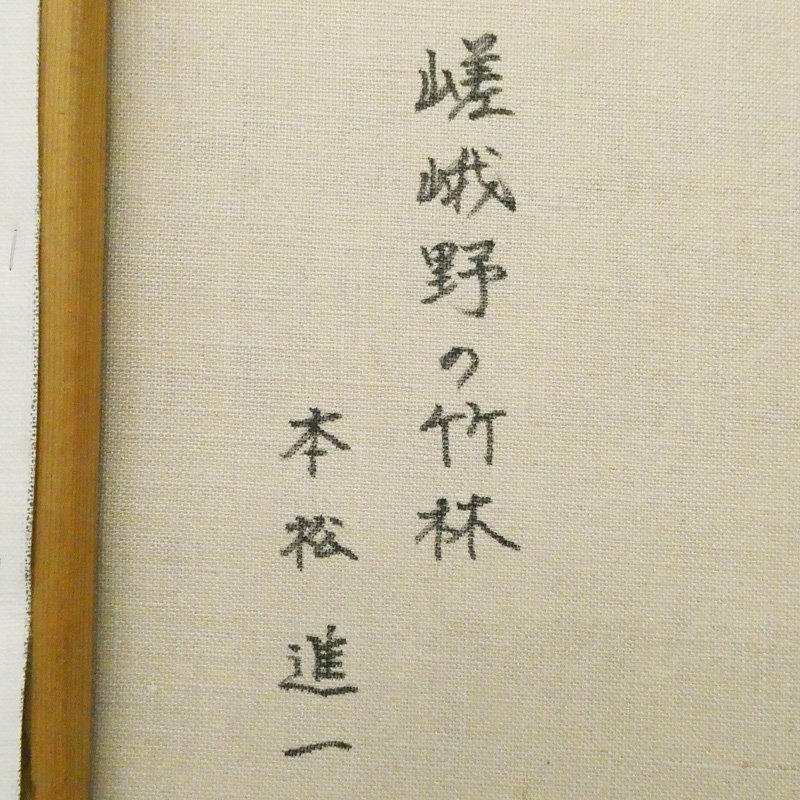 嵯峨野の竹林
本松進一